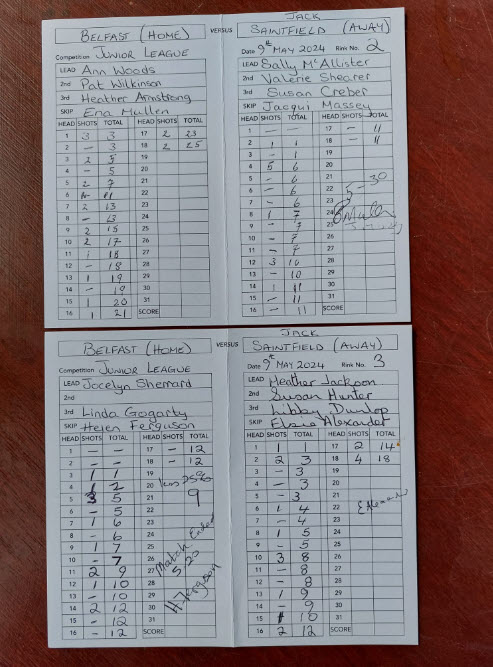 BELFAST (HOME)
Competition JUNIOR LEAGUE
LEAD Ann Woods
2nd Pat Wilkinson
3rd Heather Armstrong
SKIP Ena Mullen
HEAD SHOTS TOTAL HEAD SHOTS TOTAL
1 3 3 17 2 23
2 - 3 18 2 25
3 2 5 19
4 - 5 20
5 2 7 21
6 11 22
7 2 13 23
8 - 13 24
9 2 15 25
10 2 17 26
11 1 18 27
12 - 18 28
13 1 19 29
14 - 19 30
15 1 20 31
16 1 21 SCORE
VERSUS
JACK
SAINTFIELD (AWAY)
Date 9th MAY 2024 Rink No. 2
LEAD Sally McAllister
2nd Valerie Shearer
3rd Susan Creber
SKIP Jacqui Massey
HEAD SHOTS TOTAL HEAD SHOTS TOTAL
1 - - 17 - 11
2 1 1 18 - 11
3 - 1 19
4 5 6 20
5 - 6 21
6 - 6 22 5-30
7 - 6 23
8 1 7 24 EMullen
9 - 7 25
10 - 7 26
11 - 7 27
12 3 10 28
13 - 10 29
14 1 11 30
15 - 11 31
16 - 11 SCORE
BELFAST (HOME)
Competition JUNIOR LEAGUE
LEAD Jocelyn Sherrard
2nd
3rd Linda Gogarty
SKIP Helen Ferguson
HEAD SHOTS TOTAL HEAD SHOTS TOTAL
1 - - 17 - 12
2 - - 18 - 12
3 1 1 19
4 1 2 20 less 25%
5 3 5 21 9
6 - 5 22
7 1 6 23
8 - 6 24
9 1 7 25
10 - 7 26
11 2 9 27
12 1 10 28
13 - 10 29
14 2 12 30
15 - 12 31
16 - 12 SCORE
Match Ended
5.20
H Ferguson
VERSUS
JACK
SAINTFIELD (AWAY)
Date 9th MAY 2024 Rink No. 3
LEAD Heather Jackson
2nd Susan Hunter
3rd Libby Dunlop
SKIP Elsie Alexander
HEAD SHOTS TOTAL HEAD SHOTS TOTAL
1 1 1 17 2 14
2 2 3 18 4 18
3 - 3 19
4 - 3 20
5 - 3 21
6 1 4 22 E Alexander
7 - 4 23
8 1 5 24
9 - 5 25
10 3 8 26
11 - 8 27
12 - 8 28
13 1 9 29
14 - 9 30
15 1 10 31
16 2 12 SCORE